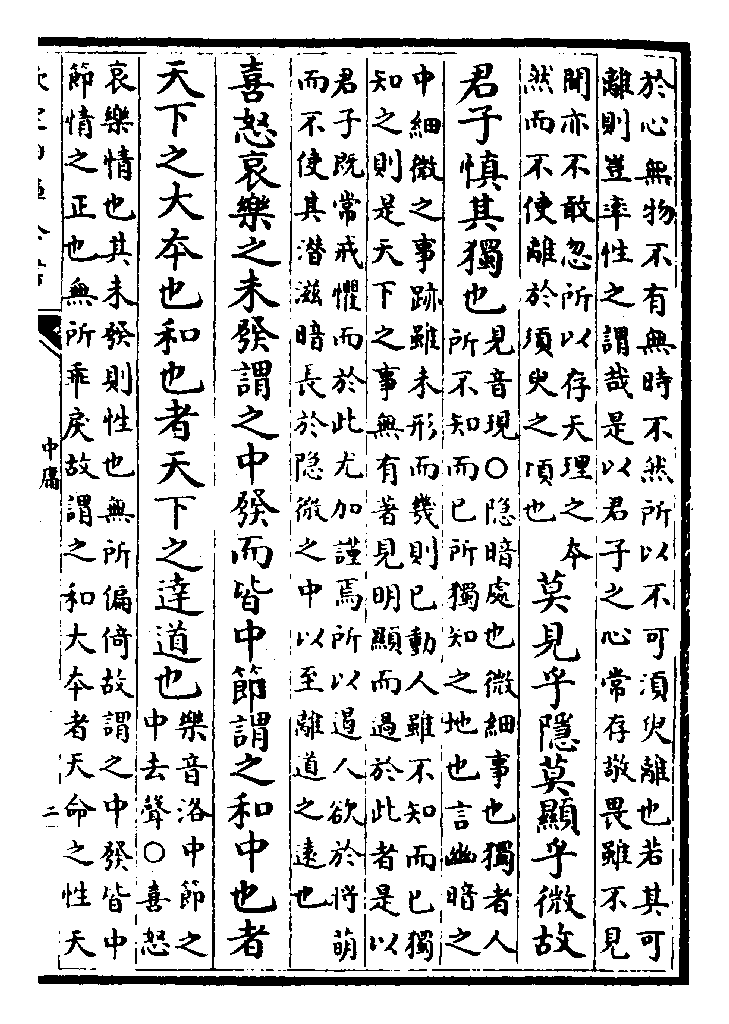 於心無物不有無時不然所以不可須臾離也若其可
離則豈率性之謂哉是以君子之心常存敬畏雖不見
聞亦不敢忽所以存天理之本
然而不使離於須臾之頃也
莫見乎隱莫顯乎微故
君子慎其獨也
見音現○隐暗處也微細事也獨者人
所不知而已所獨知之地也言幽暗之
中細微之事跡雖未形而幾則已動人雖不知而已獨
知之則是天下之事無有著見明顯而過於此者是以
君子既常戒懼而於此尤加謹焉所以遏人欲於將萌
而不使其潜滋暗長於隐微之中以至離道之遠也
喜怒哀樂之未發謂之中發而皆中節謂之和中也者
天下之大本也和也者天下之達道也
樂音洛中節之
中去聲○喜怒
哀樂情也其未發則性也無所偏倚故謂之中發皆中
節情之正也無所乖戾故謂之和大本者天命之性天
中庸
二